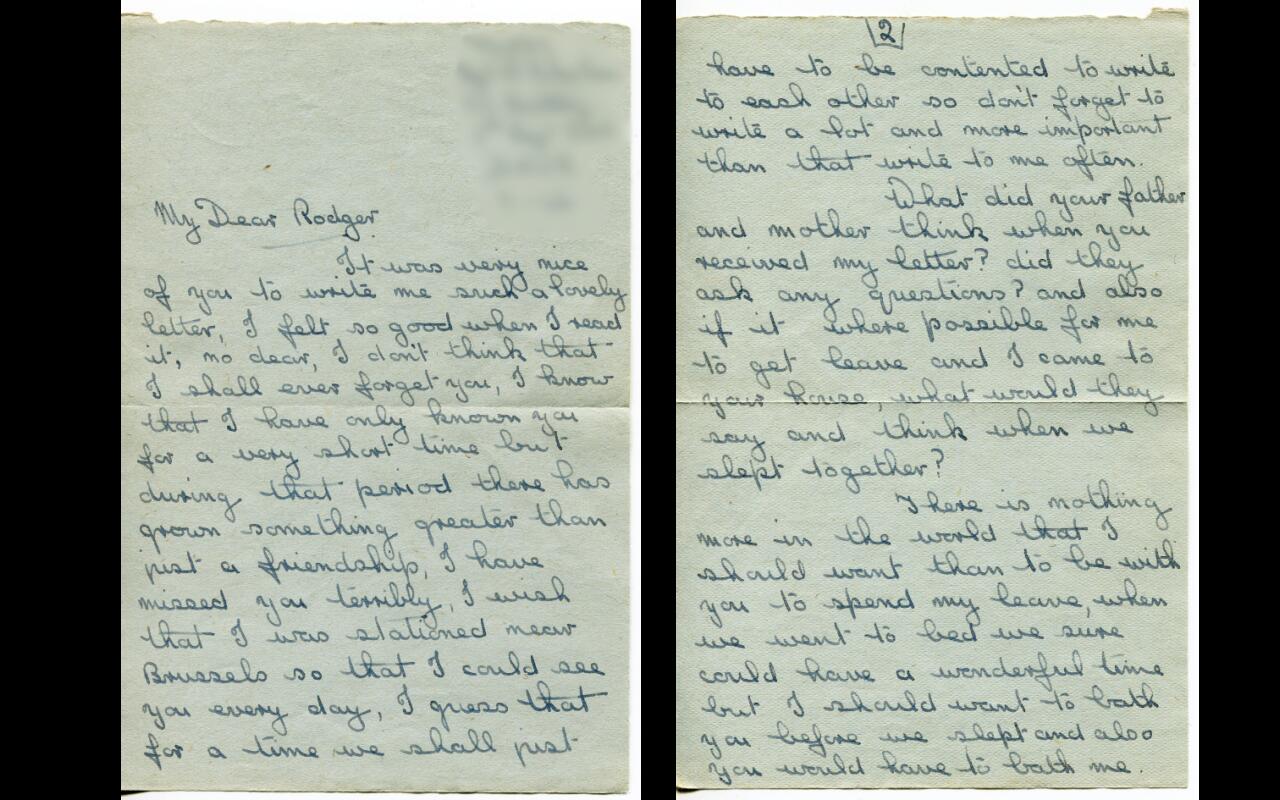 My Dear Rodger
It was very nice
of you to write me such a lovely
letter, I felt so good when I read
it, no dear, I don't think that
I shall ever forget you, I know
that I have only known you
for a very short time but
during that period there has
grown something greater than
just a friendship, I have
missed you terribly, I wish
that I was stationed near
Brussels so that I could see
you every day, I guess that
for a time we shall just
2
have to be contented to write
to each other so don't forget to
write a lot and more important
than that write to me often.
What did your father
and mother think when you
received my letter? did they
ask any questions? and also
if it where possible for me
to get leave and I came to
your house, what would they
say and think when we
slept together?
There is nothing
more in the world that I
should want than to be with
you to spend my leave, when
we went to bed we sure
could have a wonderful time
but I should want to bath
you before we slept and also
you would have to bath me.